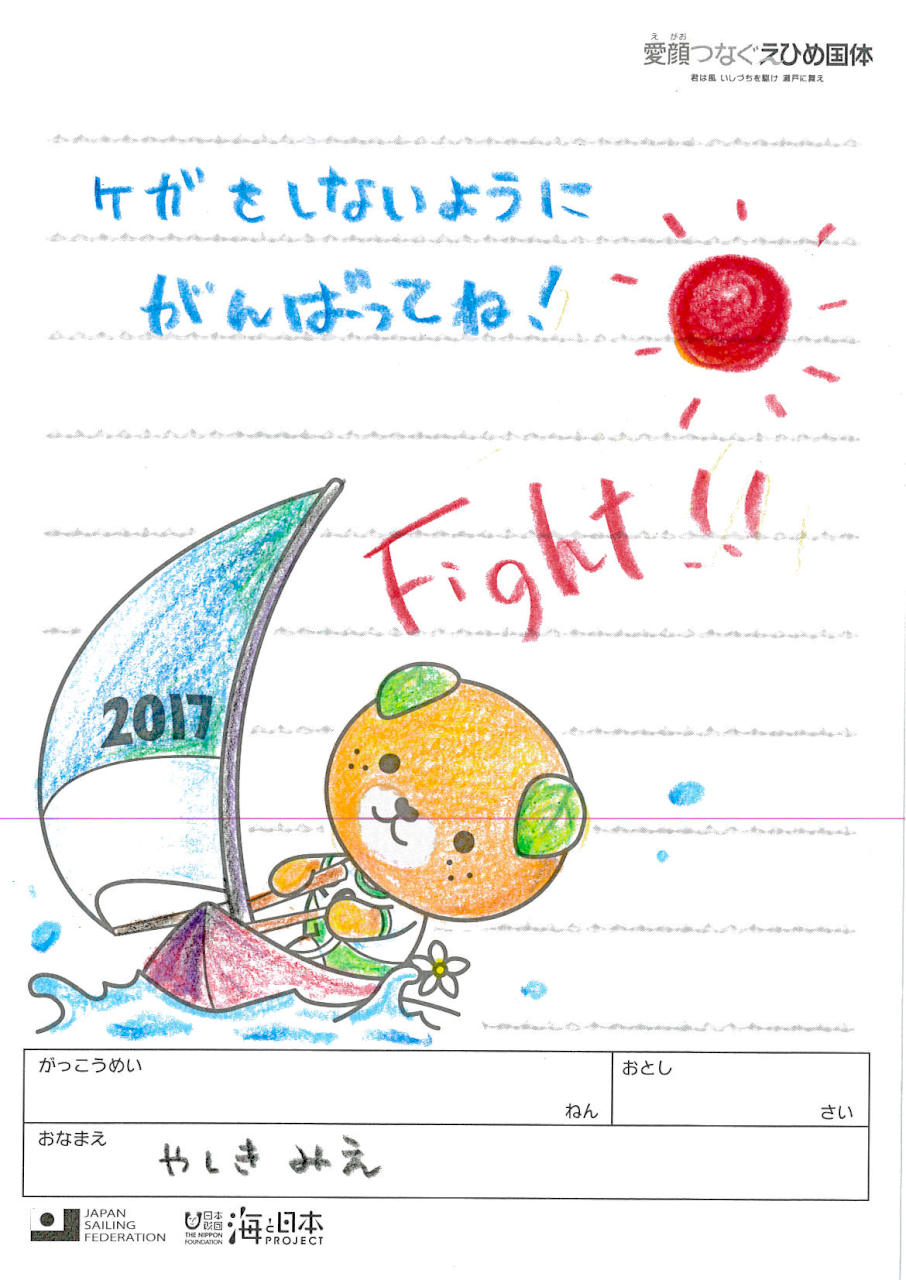 えがお
愛顔つなぐえひめ国体
君は風 いしづちを駆け 瀬戸に舞え
ケガをしないように
がんばってね!
Fight!!
2017
がっこうめい
ねん
おとし
さい
おなまえ
やしき みえ
JAPAN
SAILING
FEDERATION
日本
財団
THE NIPPON
FOUNDATION
海と日本
PROJECT